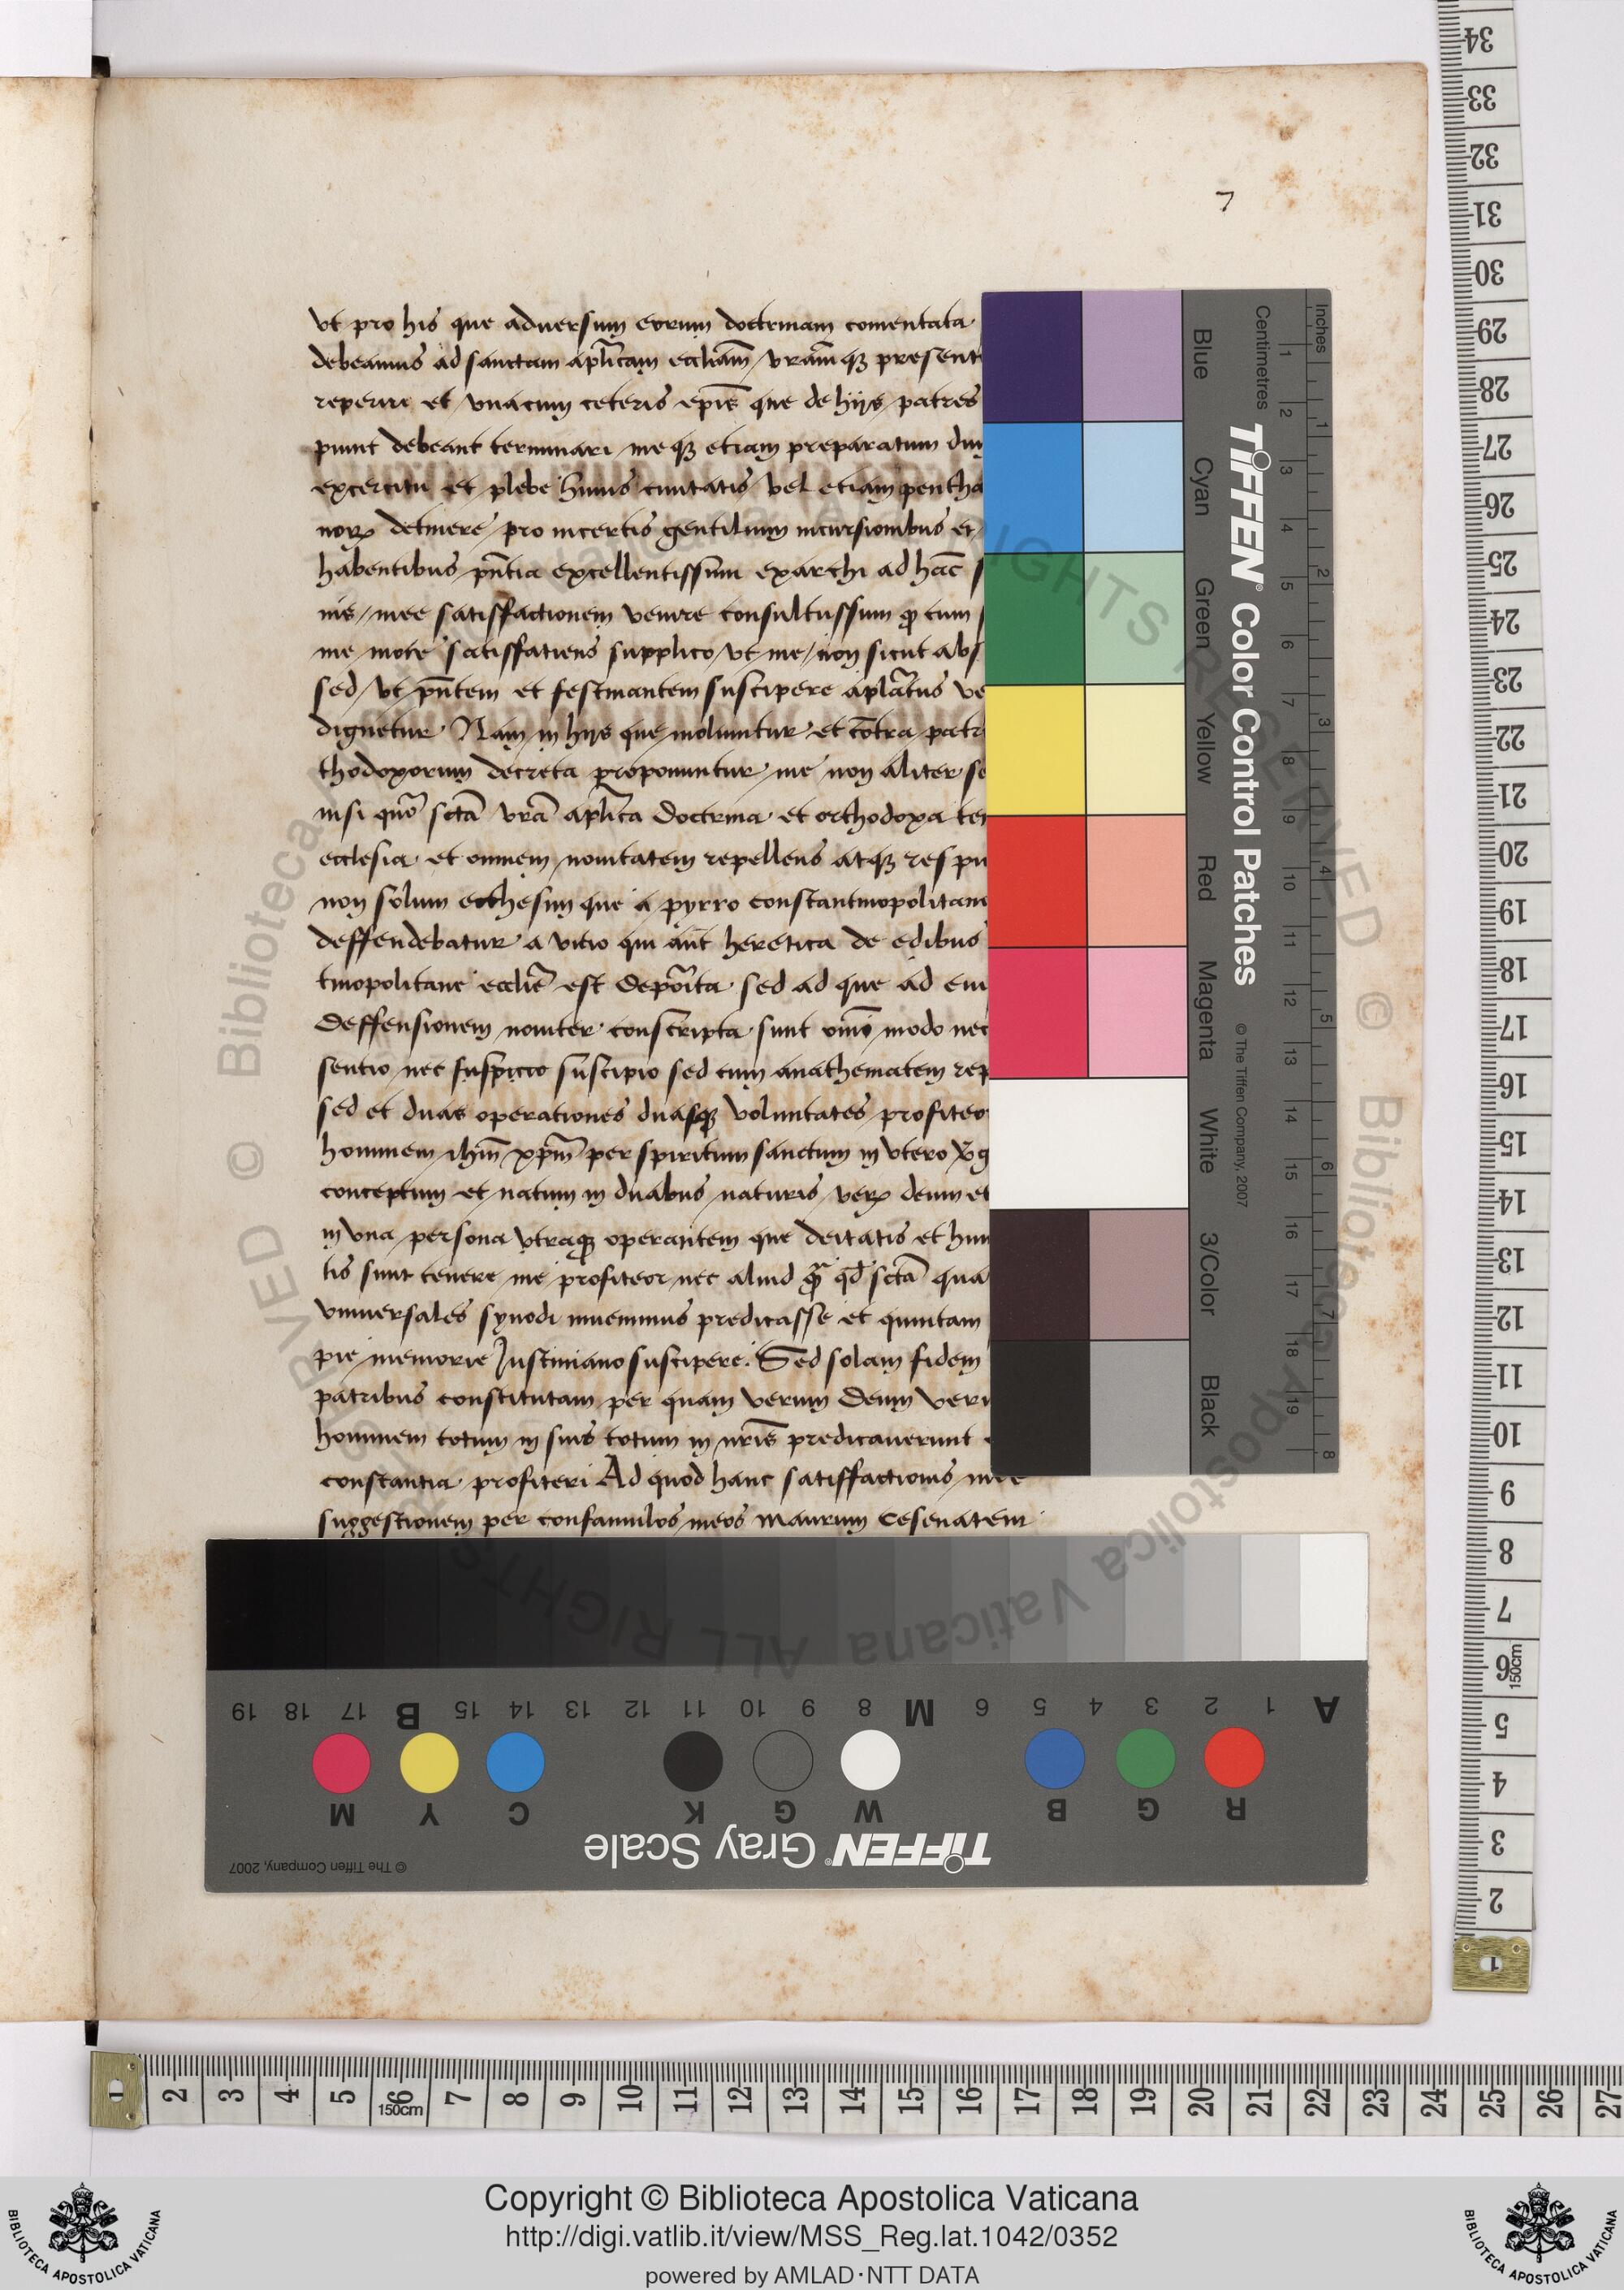 7
vt pro his que aduersum eorum doctrinam comentata
debeamus ad sanctam aplicam eccliam vramqz present
reperiri et vnacum ceteris epis que de hijs patres
piunt debeant terminari meqz etiam preparatum
excercitu et plebe huius ciuitatis vel etiam pentha
detinere pro incertis gentilium incursionibus et
habentibus pntia excellentissimi exarchi ad hac
nis mee satisffactionem venire consultussum cum
me more satisffatiens supplico vt me non sicut abs
sed vt pntem et festinantem suscipere aplatus ve
dignetur Nam in hijs que moliuntur et cotra patr
thodoxorum decreta proponuntur me non aliter se
nisi quo scta vra aplica doctrina et orthodoxa ten
ecclesia et omnem nouitatem repellens atqz respu
non solum ecthesim que a pyrro constantinopolitane
deffendebatur a vicio qui ant heretica de edibus
tinopolitane ecclie est deporita sed ad que ad eiu
deffensionem nouiter conscripta sunt omi modo nec
sentio nec suspicio suscipio sed cum anathematem rep
sed et duas operationes duasqz voluntates profiteor
hominem ihm xpm per spiritum sanctum in vtero vg
conceptum et natum in duabus naturis deum et
in vna persona vtraqz operantem que deitatis et hum
tis sunt tenere me profiteor nec aliud qd scta qua
vniuersales synodi inuenimus predicasse et quintam
pie memorie Justiniano suscipere. Sed solam fidem
patribus constitutam per quam verum deum veru
hominem totum in suis totum in nris predicauerunt
constantia profiteri Ad quod hanc satisffactionis mee
suggestionem per confamulos meos maurum cesenatem
Inches
Centimetres
TIFFEN® Color Control Patches
© The Tiffen Company, 2007
Blue
Cyan
Green
Yellow
Red
Magenta
White
3/Color
Black
A 1 2 3 4 5 6 M 8 9 10 11 12 13 14 15 B 17 18 19
R G B W G K C Y M
TIFFEN® Gray Scale
© The Tiffen Company, 2007
1 2 3 4 5 6 7 8 9 10 11 12 13 14 15 16 17 18 19 20 21 22 23 24 25 26 27
150cm
Copyright © Biblioteca Apostolica Vaticana
http://digi.vatlib.it/view/MSS_Reg.lat.1042/0352
powered by AMLAD·NTT DATA
BIBLIOTECA APOSTOLICA VATICANA
BIBLIOTECA APOSTOLICA VATICANA